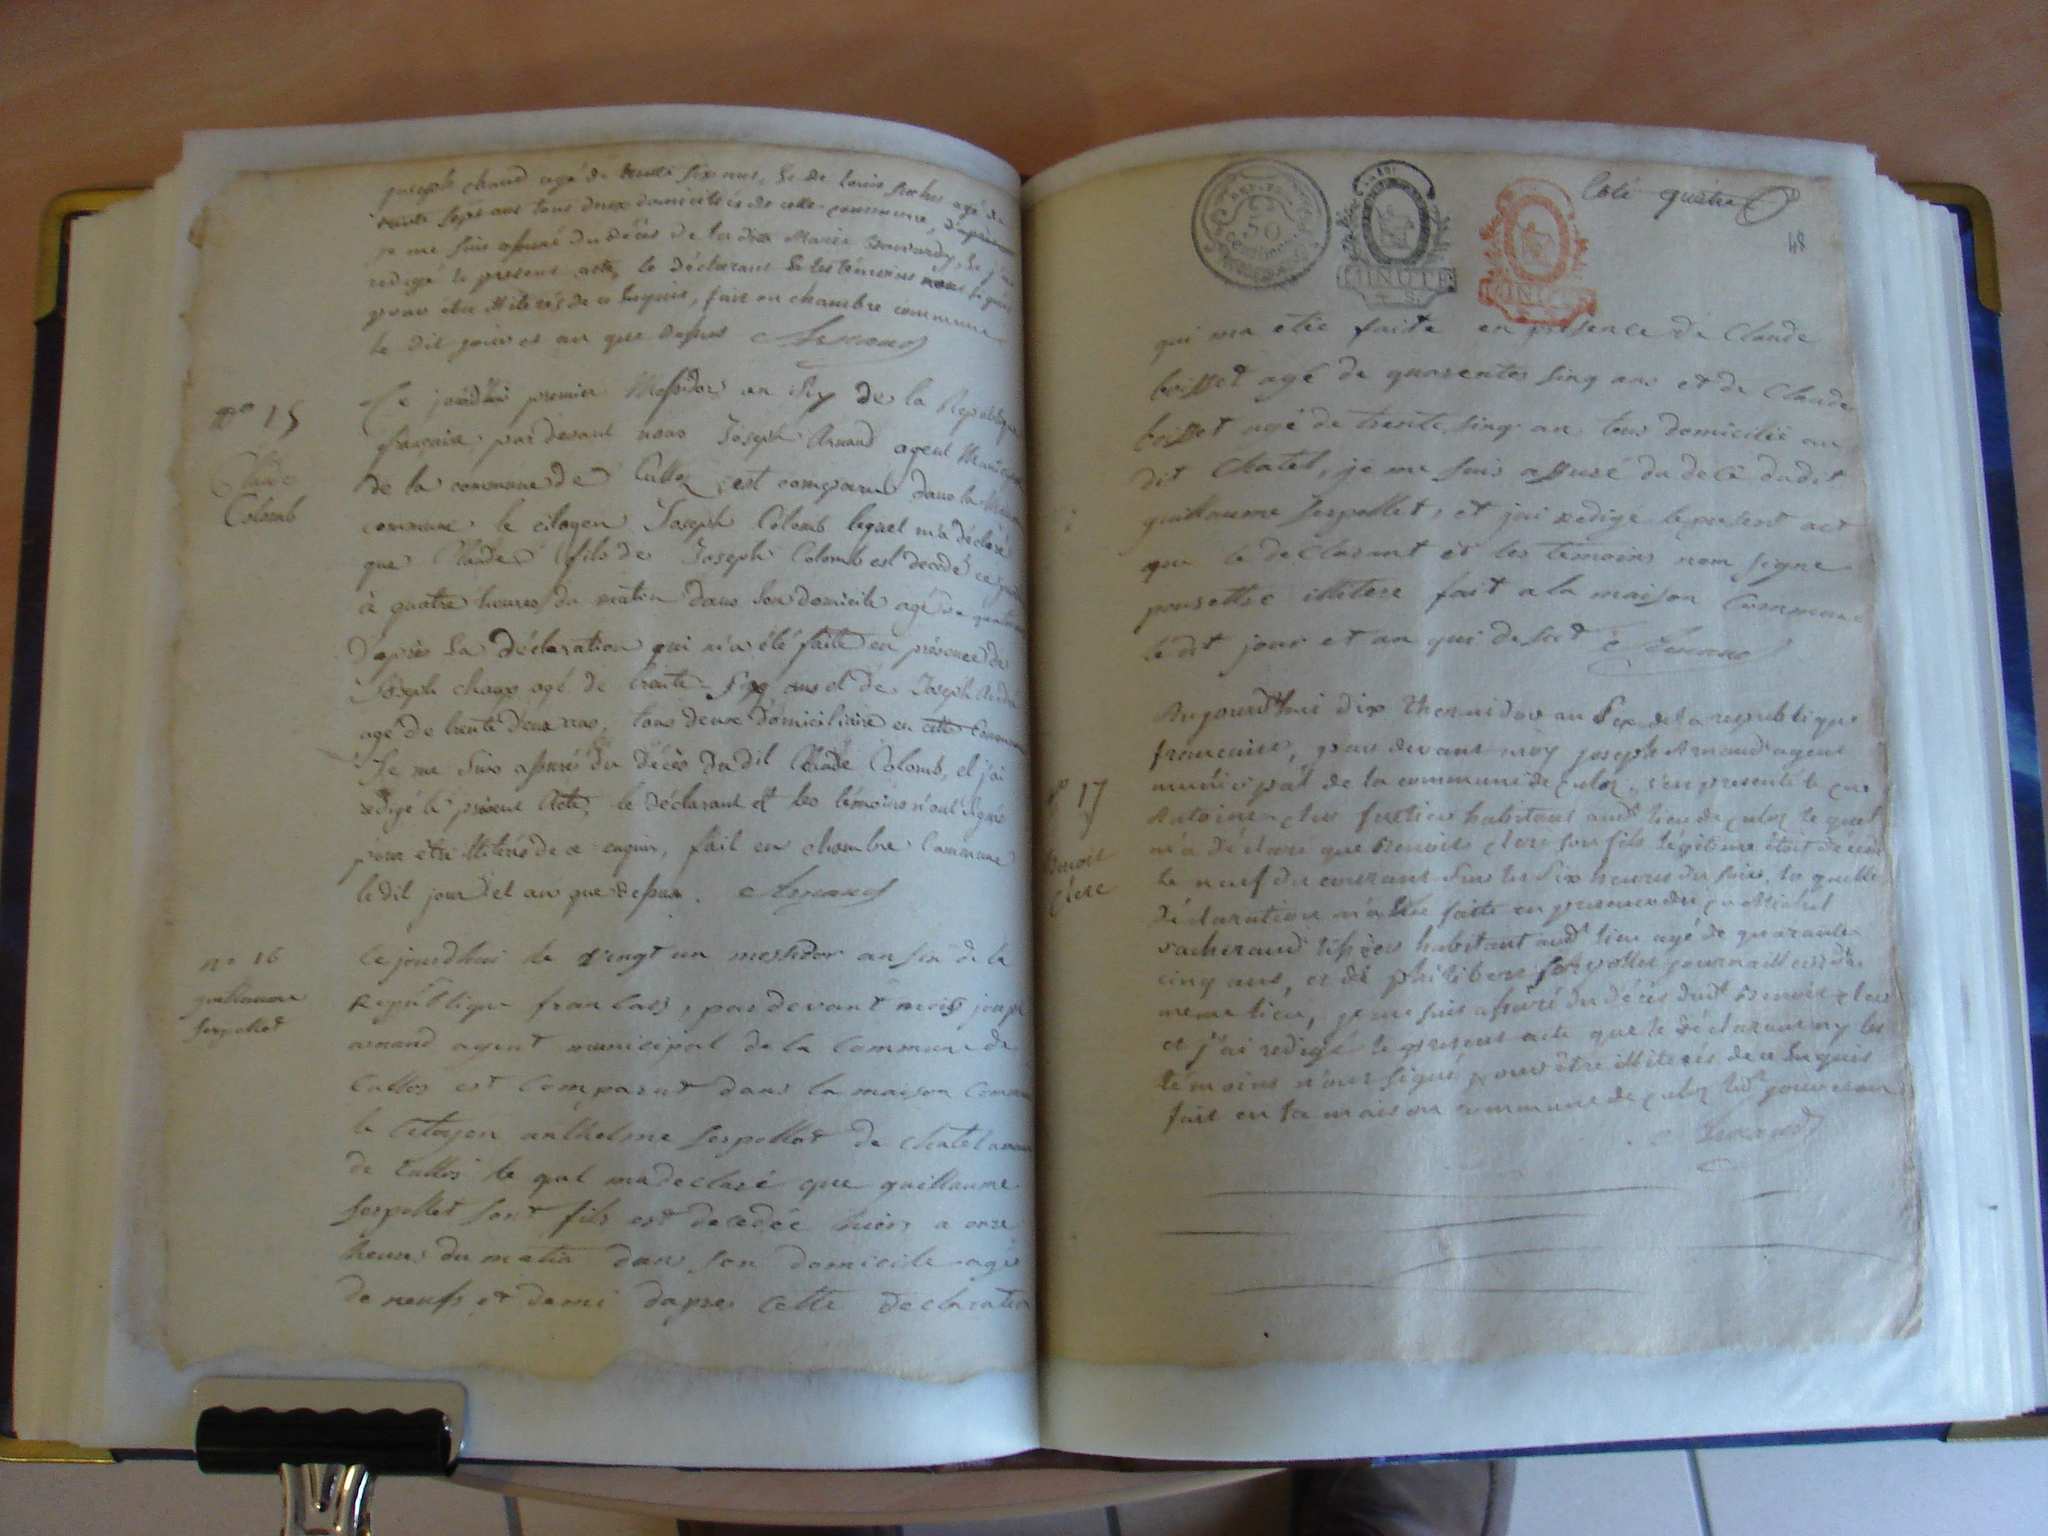 joseph chaud agé de trente six ans, & de Louis agé de
trente sept ans tous deux domiciliés de cette commune, d'après
je me suis assuré du décès de la dite Marie & j'ai
redigé le present acte, le déclarant & les témoins
pour être illiterés de ce enquis, fait en chambre commune
le dit jour et an que dessus Arnaud
n° 15
Claude
Colomb
Ce jourdhui premier Messidor an Six de la Republique
francaise par devant nous Joseph Arnaud agent Municipal
de la commune de Culloz est comparu dans la Maison
commune le citoyen Joseph Colomb lequel m'a déclaré
que Claude fils de Joseph Colomb est decedé ce
à quatre heures du matin dans son domicile agé de
D'après la déclaration qui m'a été faite en présence de
Joseph chaux agé de trente Six ans et de Joseph
agé de trente deux ans, tous deux domiciliaire en cette Commune
Je me suis assuré du Décès Dudit Claude Colomb, et j'ai
redigé le présent Acte, le déclarant et les témoins n'ont signé
pour être illiterés de ce enquis, fait en chambre Commune
ledit jour et an que dessus. Arnaud
n° 16
guillaume
serpollet
Ce jourdhui le vingt un messidor an six de la
Republique francais, par devant mois joseph
arnaud agent municipal de la Commune de
Culloz est Comparut dans la maison Commune
le Citoyen anthelme serpollet de chatel
de Culloz le qel ma declaré que guillaume
serpollet sont fils est decedée hiers a onze
heures du matin dans son domicile agé
de neufs et demi dapres Cette declaration
Coté quatre
48
50
Centimes
MINUTE
MINUTE
qui ma etée faite en presence de Claude
boisset agé de quarente sinq ans et de Claude
boisset agé de trente sinq an tous domicilié au
dit Chatel, je me suis assuré du decé dudit
guillaume serpollet, et jai redigé le present act
que le declarant et les temoins nom signe
pour illitere fait a la maison Commune
le dit jour et an qui desut Arnaud
n° 17
Benoit
Clerc
Aujourd'hui dix thermidor an six de la republique
francaise, par devant moy joseph Arnaud agent
municipal de la commune de culoz, s'en presenté le
Antoine clerc habitant aud lieu de culoz le quel
m'a déclaré que Benoit clerc son fils légitime étoit decedé
le neuf du courant sur les six heures du soir, la quelle
déclaration m'a été faite en presence de Michel
vacheraud habitant aud lieu agé de quarante
cinq ans, et de philibert serpollet journaillier du
meme lieu, je me suis assuré du décès dud Benoit clerc
et j'ai redigé le present acte que le déclarant ny les
témoins n'ont signé pour être illiterés de ce enquis
fait en la maison commune de culoz lesd jour et an
Arnaud